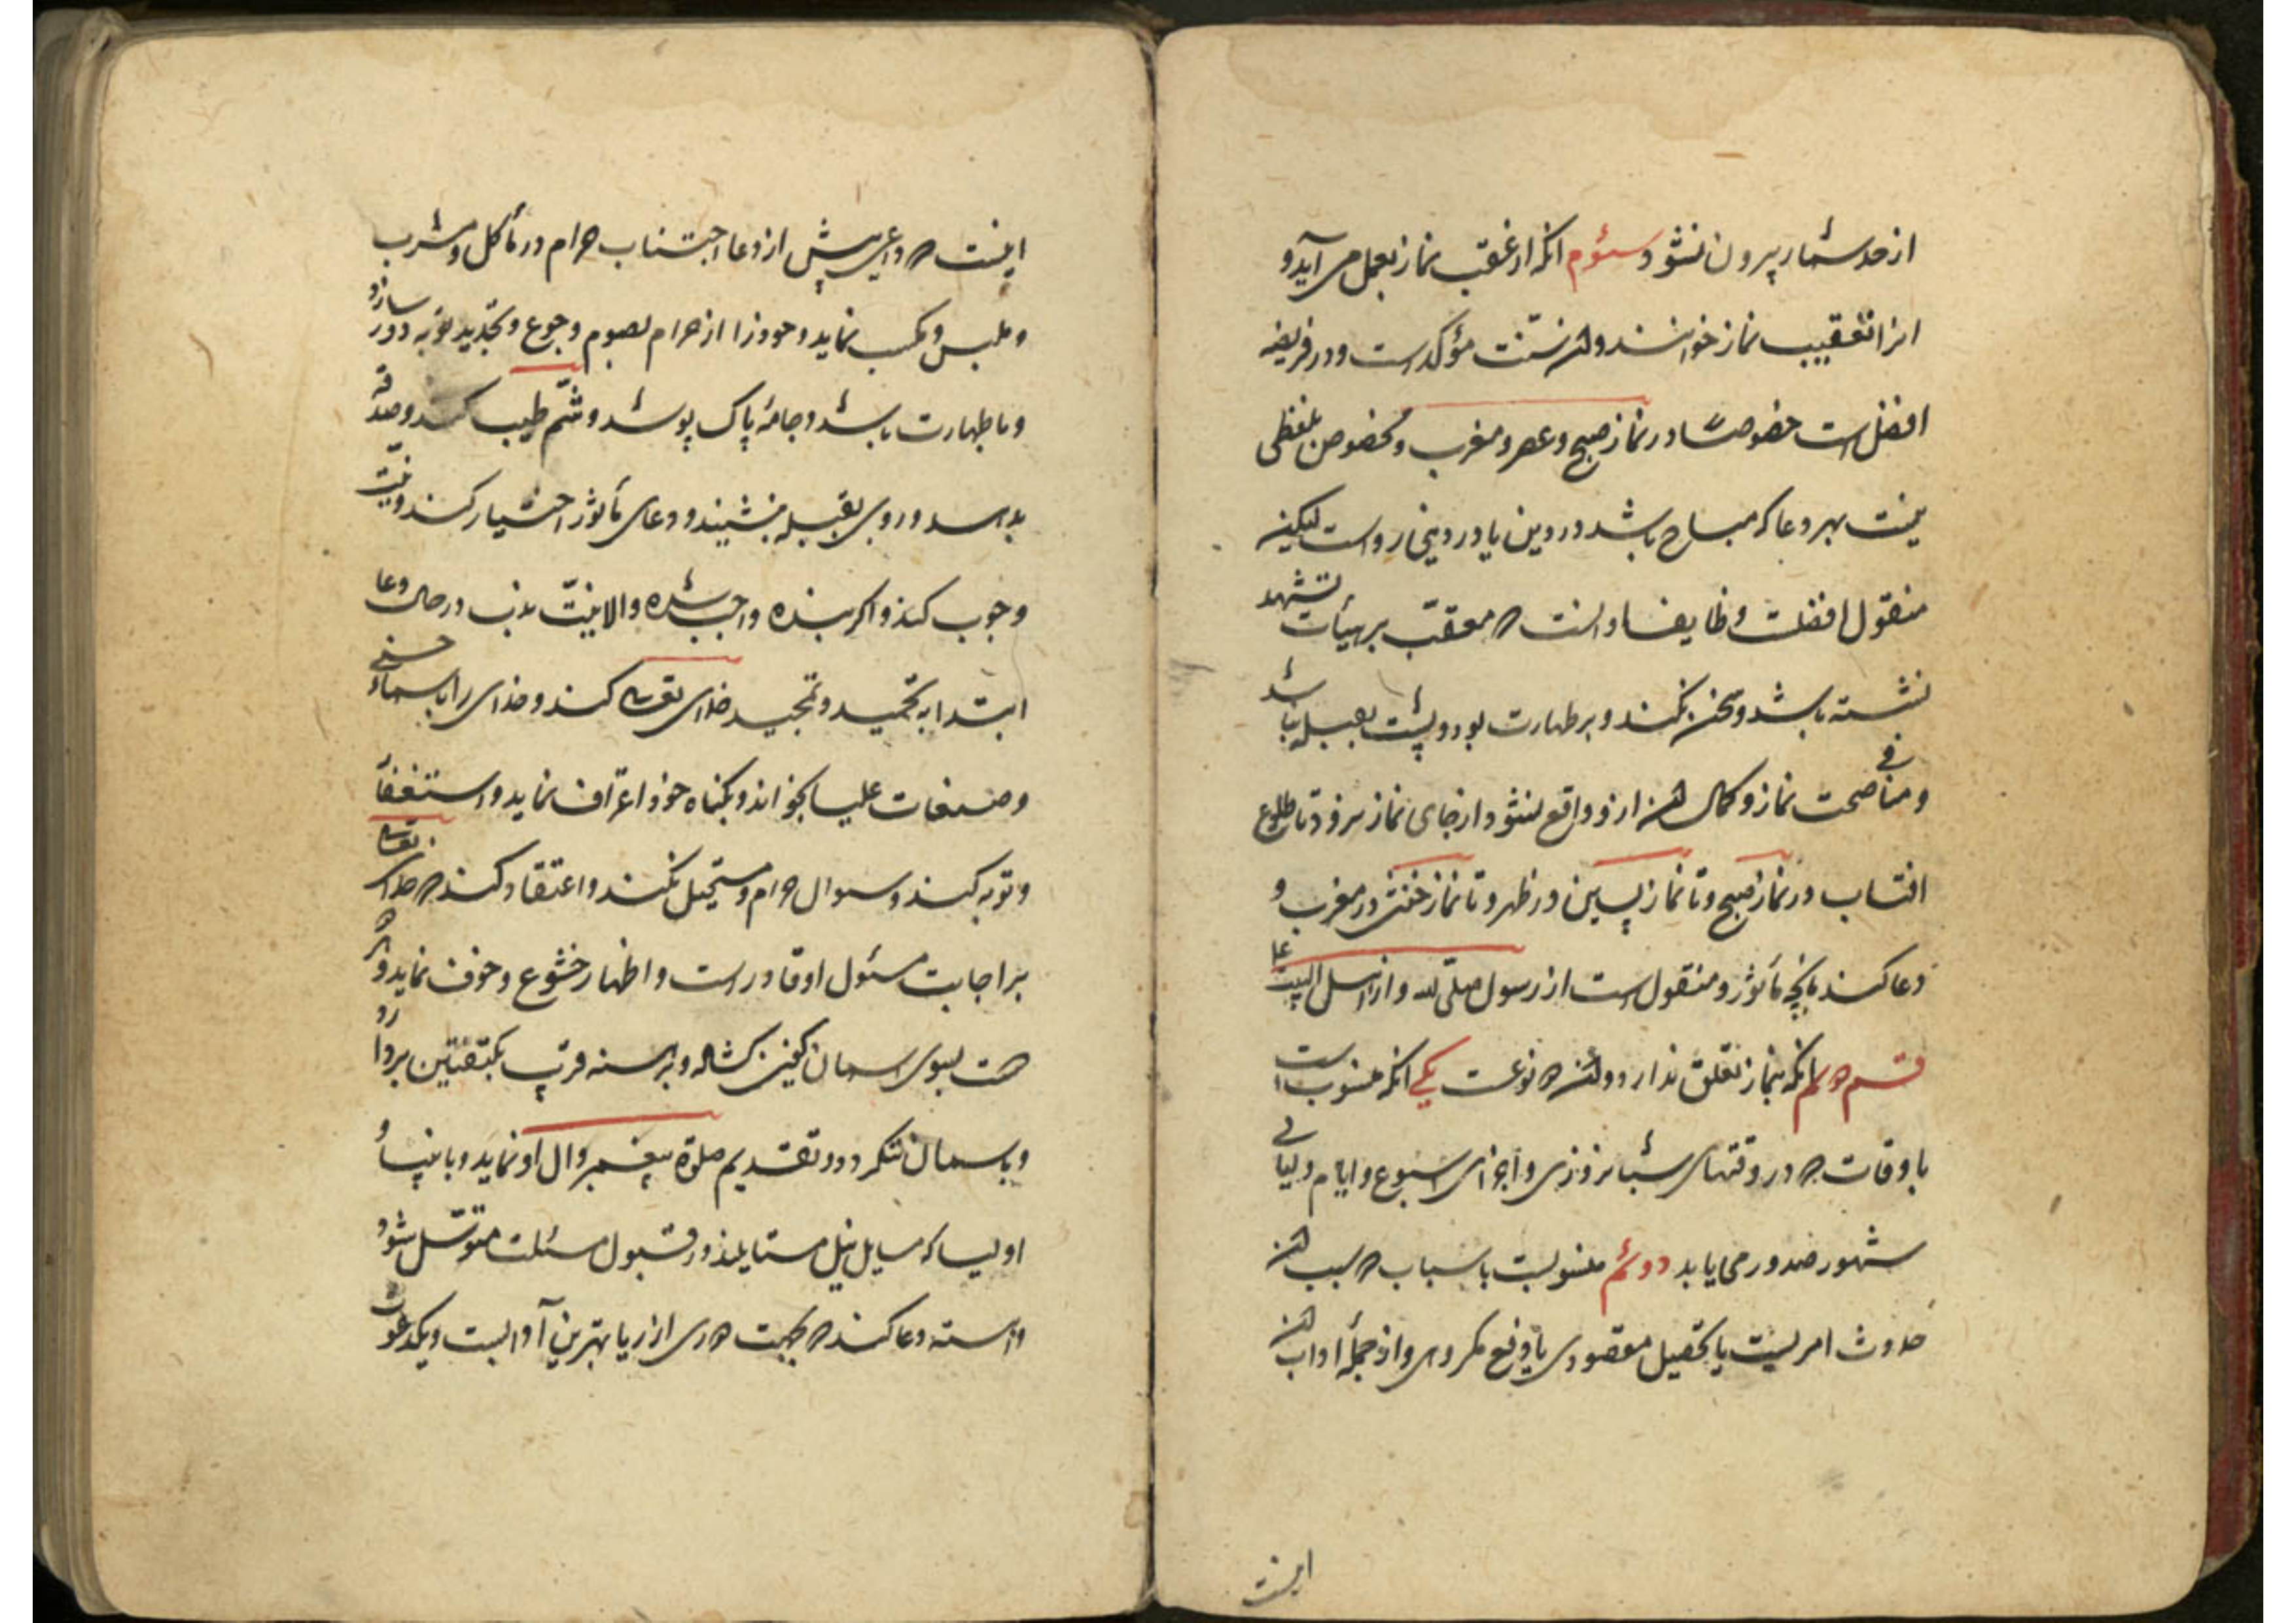 از حد شمار بیرون نشود سئوم انکه از عقب نماز بعمل می آید و
انرا تعقیب نماز خوانند و آن سنّت مؤکد است و در فریضه
افضل است خصوصًا در نماز صبح و عصر و مغرب و مخصوص بلفظی
نیست بهر دعا که مباح باشد در دین یا در دنیی رواست لیکن
منقول افضلست وظایف او انست که معقّب بر هیأت تشهد
نشسته باشد و سخن نکند و بر طهارت بود و پشت بقبله نباشد
و منافی صحت نماز و کمال آن ازو واقع نشود از جای نماز نرود تا طلوع
افتاب در نماز صبح و تا نماز پسین در ظهر و تا نماز خفتن در مغرب و
دعا کند بانچه مأثور و منقول است از رسول صلّی لله و از اهل البیت
قسم دوم انکه بنماز تعلق ندارد و آن دو نوعست یکی انکه منسوب است
باوقات که در وقتهای شبانروزی و اجزای اسبوع و ایام و لیالی
شهور صدور می یابد دوئم منسوبست باسباب که سبب آن
حدوث امریست یا تحصیل مقصودی یا دفع مکروهی و از جملهٔ اداب آن
اینست
اینست که داعی پیش از دعا اجتناب حرام در مأکل و مشرب
و ملبس و مکسب نماید و خود را از حرام بصوم و جوع و تجدید توبه دور سازد
و با طهارت باشد و جامهٔ پاک پوشد و شمّ طیب کند و صدقه
بدهد و روی بقبله بنشیند و دعای مأثور اختیار کند و نیّت
وجوب کند اگر بنذر واجب شده والا نیّت ندب در حال دعا
ابتدا به تحمید و تمجید خدای تعالی کند و خدای را باسماء حسنی
و صفات علیا بخواند و بگناه خود اعتراف نماید و استغفار
و توبه کند و سوال حرام و مستحیل نکند و اعتقاد کند که خدای تعالی
بر اجابت مسئول او قادر است و اظهار خشوع و خوف نماید و هر
دست بسوی اسمان کفین کشاده و بهم قریب بکتفین بردارد
و باسمان ننگرد و تقدیم صلوة پیغمبر و ال او نماید و بانبیا و
اولیا که مسایل نیل قبول مسئلت متوسّل شود
و اهسته دعا کند که بجهت دوری از ریا بهترین آدابست و یکدعوت